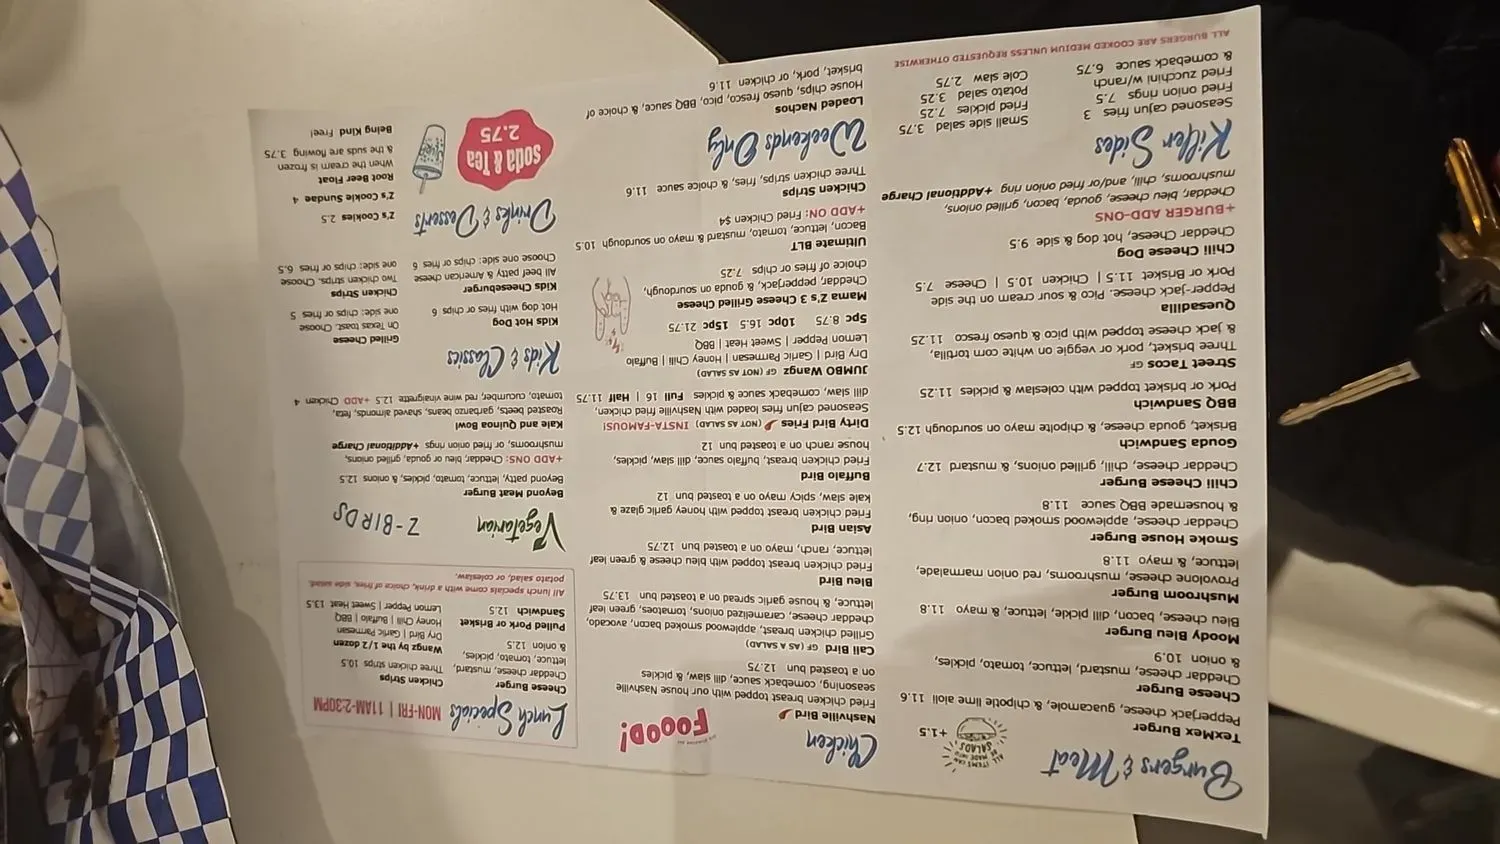 Burgers & Meat
ALL ITEMS CAN BE MADE INTO SALADS
+1.5
TexMex Burger
Pepperjack cheese, guacamole, & chipotle lime aioli 11.6
Cheese Burger
Cheddar cheese, mustard, lettuce, tomato, pickles,
& onion 10.9
Moody Bleu Burger
Bleu cheese, bacon, dill pickle, lettuce, & mayo 11.8
Mushroom Burger
Provolone cheese, mushrooms, red onion marmalade,
lettuce, & mayo 11.8
Smoke House Burger
Cheddar cheese, applewood smoked bacon, onion ring,
& housemade BBQ sauce 11.8
Chili Cheese Burger
Cheddar cheese, chili, grilled onions, & mustard 12.7
Gouda Sandwich
Brisket, gouda cheese, & chipotle mayo on sourdough 12.5
BBQ Sandwich
Pork or brisket topped with coleslaw & pickles 11.25
Street Tacos GF
Three brisket, pork or veggie on white corn tortilla,
& jack cheese topped with pico & queso fresco 11.25
Quesadilla
Pepper-jack cheese. Pico & sour cream on the side
Pork or Brisket 11.5 | Chicken 10.5 | Cheese 7.5
Chili Cheese Dog
Cheddar Cheese, hot dog & side 9.5
+BURGER ADD-ONS
Cheddar, bleu cheese, gouda, bacon, grilled onions,
mushrooms, chili, and/or fried onion ring +Additional Charge
Killer Sides
Seasoned cajun fries 3
Fried onion rings 7.5
Fried zucchini w/ranch
& comeback sauce 6.75
Small side salad 3.75
Fried pickles 7.25
Potato salad 3.25
Cole slaw 2.75
ALL BURGERS ARE COOKED MEDIUM UNLESS REQUESTED OTHERWISE
Chicken
FOOOD!
Nashville Bird
Fried chicken breast topped with our house Nashville
seasoning, comeback sauce, dill slaw, & pickles
on a toasted bun 12.75
Cali Bird GF (AS A SALAD)
Grilled chicken breast, applewood smoked bacon, avocado,
cheddar cheese, caramelized onions, tomatoes, green leaf
lettuce, & house garlic spread on a toasted bun 13.75
Bleu Bird
Fried chicken breast topped with bleu cheese & green leaf
lettuce, ranch, mayo on a toasted bun 12.75
Asian Bird
Fried chicken breast topped with honey garlic glaze &
kale slaw, spicy mayo on a toasted bun 12
Buffalo Bird
Fried chicken breast, buffalo sauce, dill slaw, pickles,
house ranch on a toasted bun 12
Dirty Bird Fries (NOT AS SALAD) INSTA-FAMOUS!
Seasoned cajun fries loaded with Nashville fried chicken,
dill slaw, comeback sauce & pickles Full 16 | Half 11.75
JUMBO Wangz GF (NOT AS SALAD)
Dry Bird | Garlic Parmesan | Honey Chili | Buffalo
Lemon Pepper | Sweet Heat | BBQ
5pc 8.75 10pc 16.5 15pc 21.75
Mama Z's 3 Cheese Grilled Cheese
Cheddar, pepperjack, & gouda on sourdough,
choice of fries or chips 7.25
Ultimate BLT
Bacon, lettuce, tomato, mustard & mayo on sourdough 10.5
+ADD ON: Fried Chicken $4
Chicken Strips
Three chicken strips, fries, & choice sauce 11.6
Weekends Only
Loaded Nachos
House chips, queso fresco, pico, BBQ sauce, & choice of
brisket, pork, or chicken 11.6
Lunch Specials MON-FRI | 11AM-2:30PM
Cheese Burger
Cheddar cheese, mustard,
lettuce, tomato, pickles,
& onion 12.5
Pulled Pork or Brisket
Sandwich 12.5
Chicken Strips
Three chicken strips 10.5
Wangz by the 1/2 dozen
Dry Bird | Garlic Parmesan
Honey Chili | Buffalo | BBQ
Lemon Pepper | Sweet Heat 13.5
All lunch specials come with a drink, choice of fries, side salad,
potato salad, or coleslaw.
Vegetarian
Z-BIRDS
Beyond Meat Burger
Beyond patty, lettuce, tomato, pickles, & onions 12.5
+ADD ONS: Cheddar, bleu or gouda, grilled onions,
mushrooms, or fried onion rings +Additional Charge
Kale and Quinoa Bowl
Roasted beets, garbanzo beans, shaved almonds, feta,
tomato, cucumber, red wine vinaigrette 12.5 +ADD Chicken 4
Kids & Classics
Kids Hot Dog
Hot dog with fries or chips 6
Kids Cheeseburger
All beef patty & American cheese
Choose one side: chips or fries 6
Grilled Cheese
On Texas toast. Choose
one side: chips or fries 5
Chicken Strips
Two chicken strips. Choose
one side: chips or fries 6.5
Drinks & Desserts
soda & Tea
2.75
Z's Cookies 2.5
Z's Cookie Sundae 4
Root Beer Float
When the cream is frozen
& the suds are flowing 3.75
Being Kind Free!